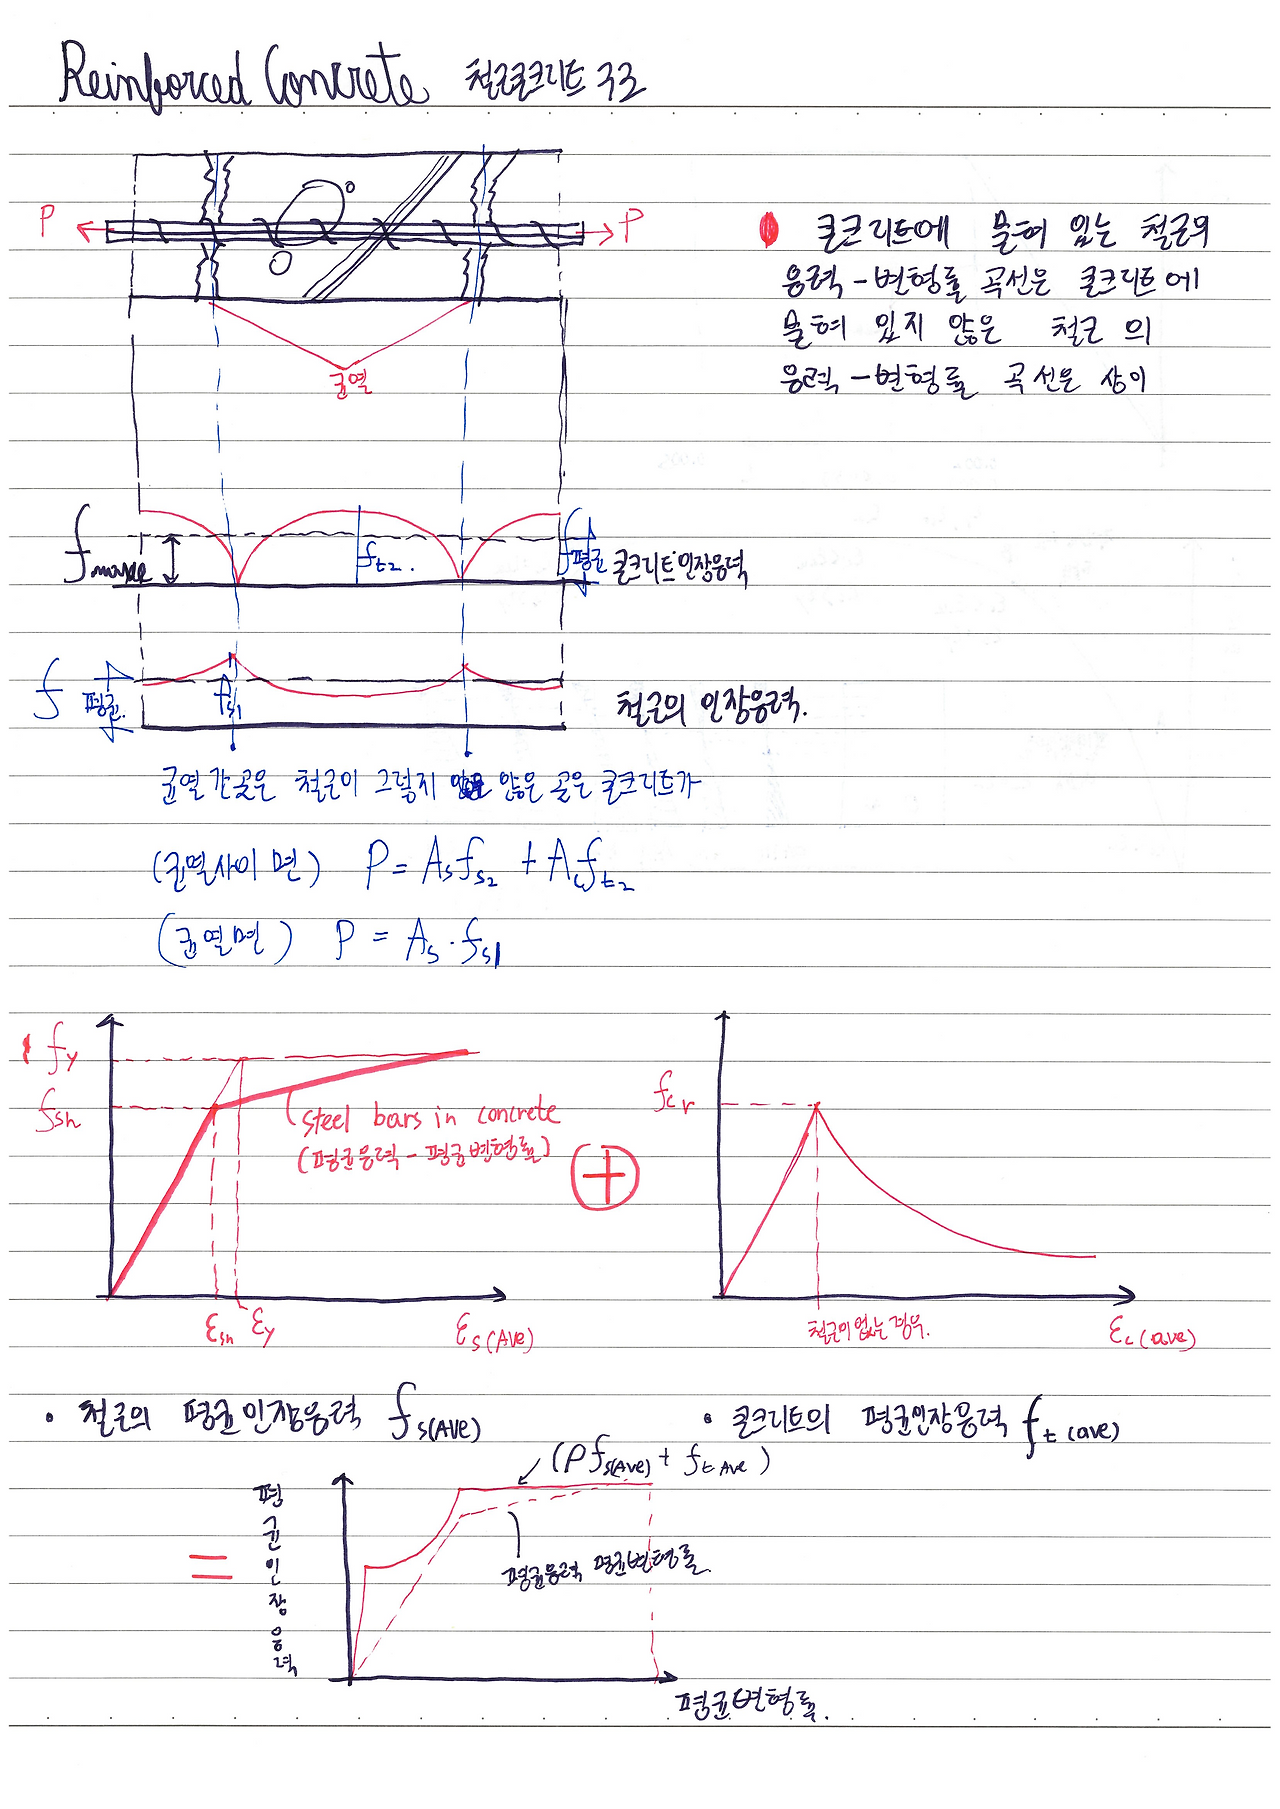 Reinforced Concrete 철근콘크리트 구조
P
P
균열
콘크리트에 묻혀 있는 철근의
응력-변형률 곡선은 콘크리트에
묻혀 있지 않은 철근의
응력-변형률 곡선은 상이
f
ft2.
f평균
콘크리트 인장응력
f 평균.
fs1
철근의 인장응력.
균열 간 곳은 철근이 그렇지 않은 곳은 콘크리트가
(균열사이 면) P = As fs2 + Ac ft2
(균열면) P = As · fs1
fy
fsn
steel bars in concrete
(평균응력 - 평균변형률)
εsn εy εs(Ave)
+
fcr
철근이 없는 경우.
εc(ave)
• 철근의 평균인장응력 fs(Ave)
• 콘크리트의 평균인장응력 ft(ave)
(ρfs(Ave) + ft Ave)
평균인장응력
=
평균응력 평균변형률.
평균변형률.